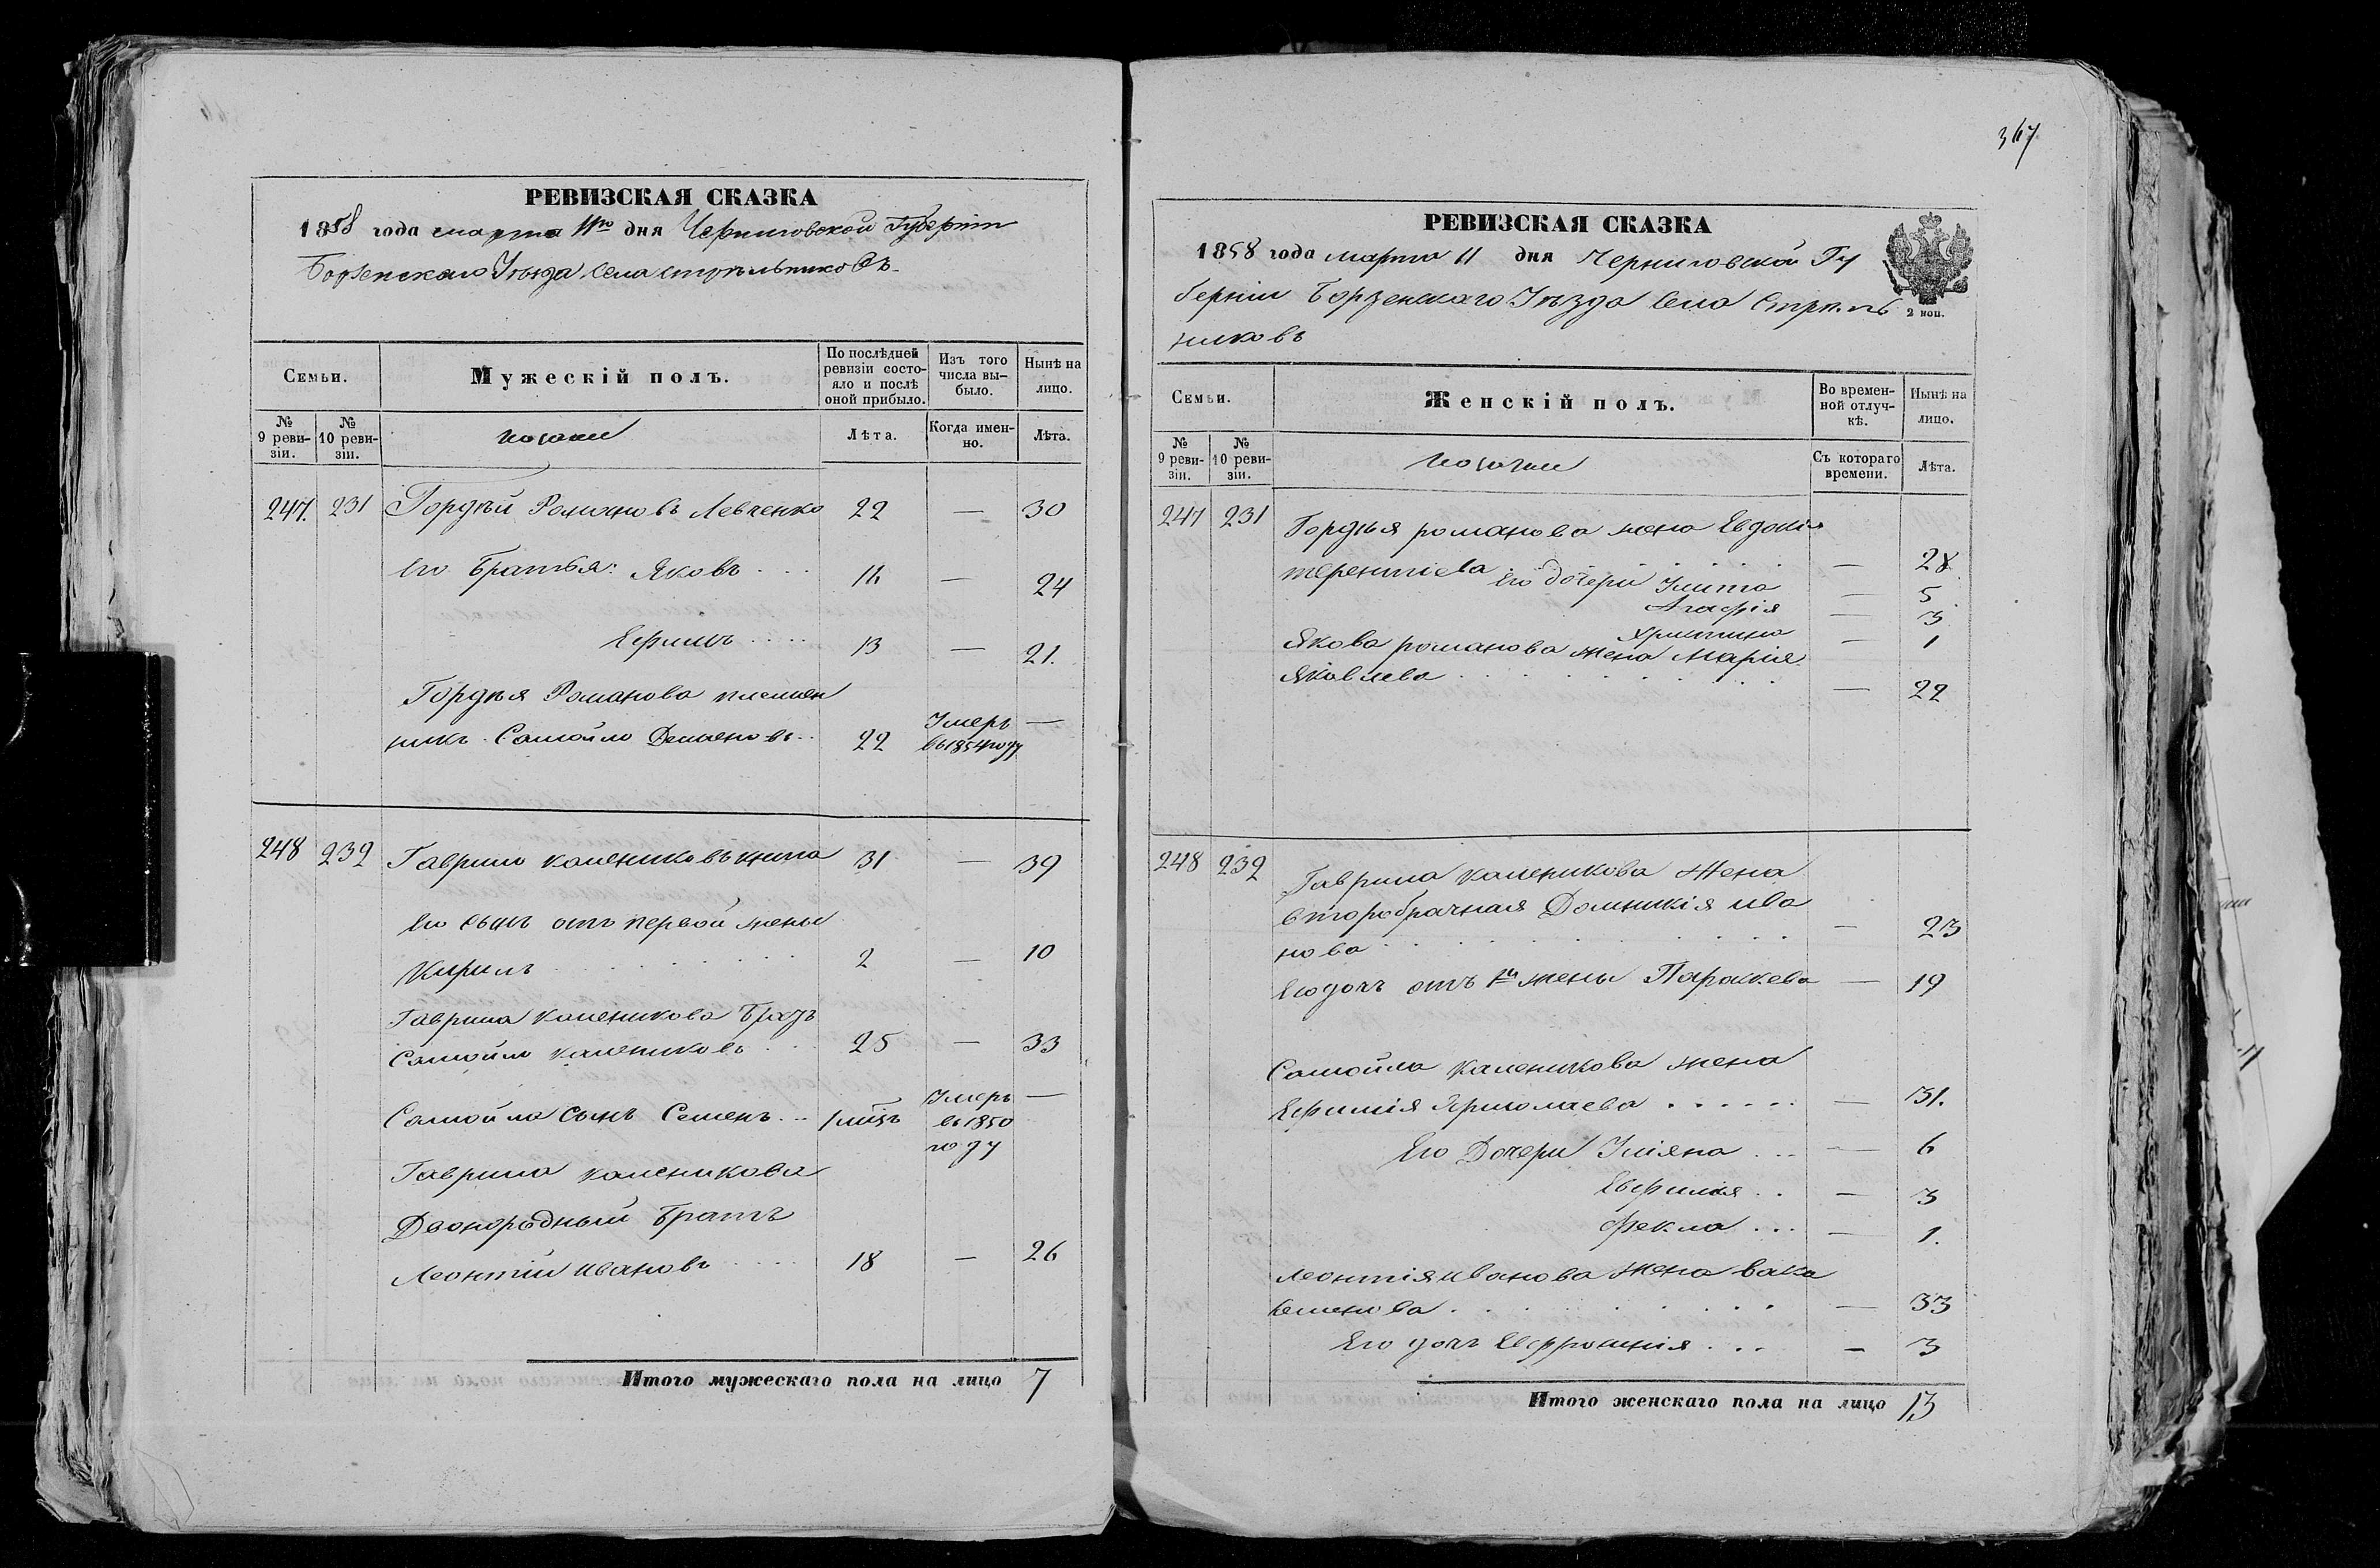 РЕВИЗСКАЯ СКАЗКА
1858 года марта 11го дня Черниговской Губернiи
Борзенскаго Уѣзда Села Стрѣльниковъ
Семьи.
Мужескiй полъ.
По послѣдней ревизiи состо-
яло и послѣ
оной прибыло.
Изъ того
числа вы-
было.
Нынѣ на
лицо.
№
9 реви-
зiи.
№
10 реви-
зiи.
Лѣта.
Когда имен-
но.
Лѣта.
247. 231 Гордѣй Романовъ Левченко 22 — 30
его Братья: Яковъ 16 — 24
Ефимъ 13 — 21.
Гордѣя Романова племен
никъ Самойло Демьеновъ 22 Умеръ —
въ 1854 году
248 232 Гаврило Калениковъ 31 — 39
Его сынъ отъ первой жены
Кирилъ 2 — 10
Гаврила Каленикова Братъ
Самойло Калениковъ 25 — 33
Самойла сынъ Семенъ Умеръ —
въ 1850
году
Гаврила Каленикова
Двоюродный Братъ
Леонтiй Ивановъ 18 — 26
Итого мужескаго пола на лицо 7
367
РЕВИЗСКАЯ СКАЗКА
1858 года марта 11 дня Черниговской Гу
бернiи Борзенскаго Уѣзда Села Стрѣль
никовъ
2 коп.
Семьи.
Женскiй полъ.
Во времен-
ной отлуч-
кѣ.
Нынѣ на
лицо.
№
9 реви-
зiи.
№
10 реви-
зiи.
Съ котораго
времени.
Лѣта.
247 231 Гордѣя романова жена Евдокiя
терентiева — 28
Его дочери Улита — 5
Агафiя — 3
Христина — 1
Якова романова жена Марiя
Яковлева — 22
248 232 Гаврила Каленикова Жена
второбрачная Домникiя ива
нова — 23
Его дочь отъ 1й жены Параскева — 19
Самойла Каленикова жена
Ефимiя Ярмолаева — 31.
Его Дочери Улiяна — 6
Евфимiя — 3
Фекла — 1.
Леонтiя Иванова Жена
Семенова — 33
Его дочь Евфросинiя — 3
Итого женскаго пола на лицо 13